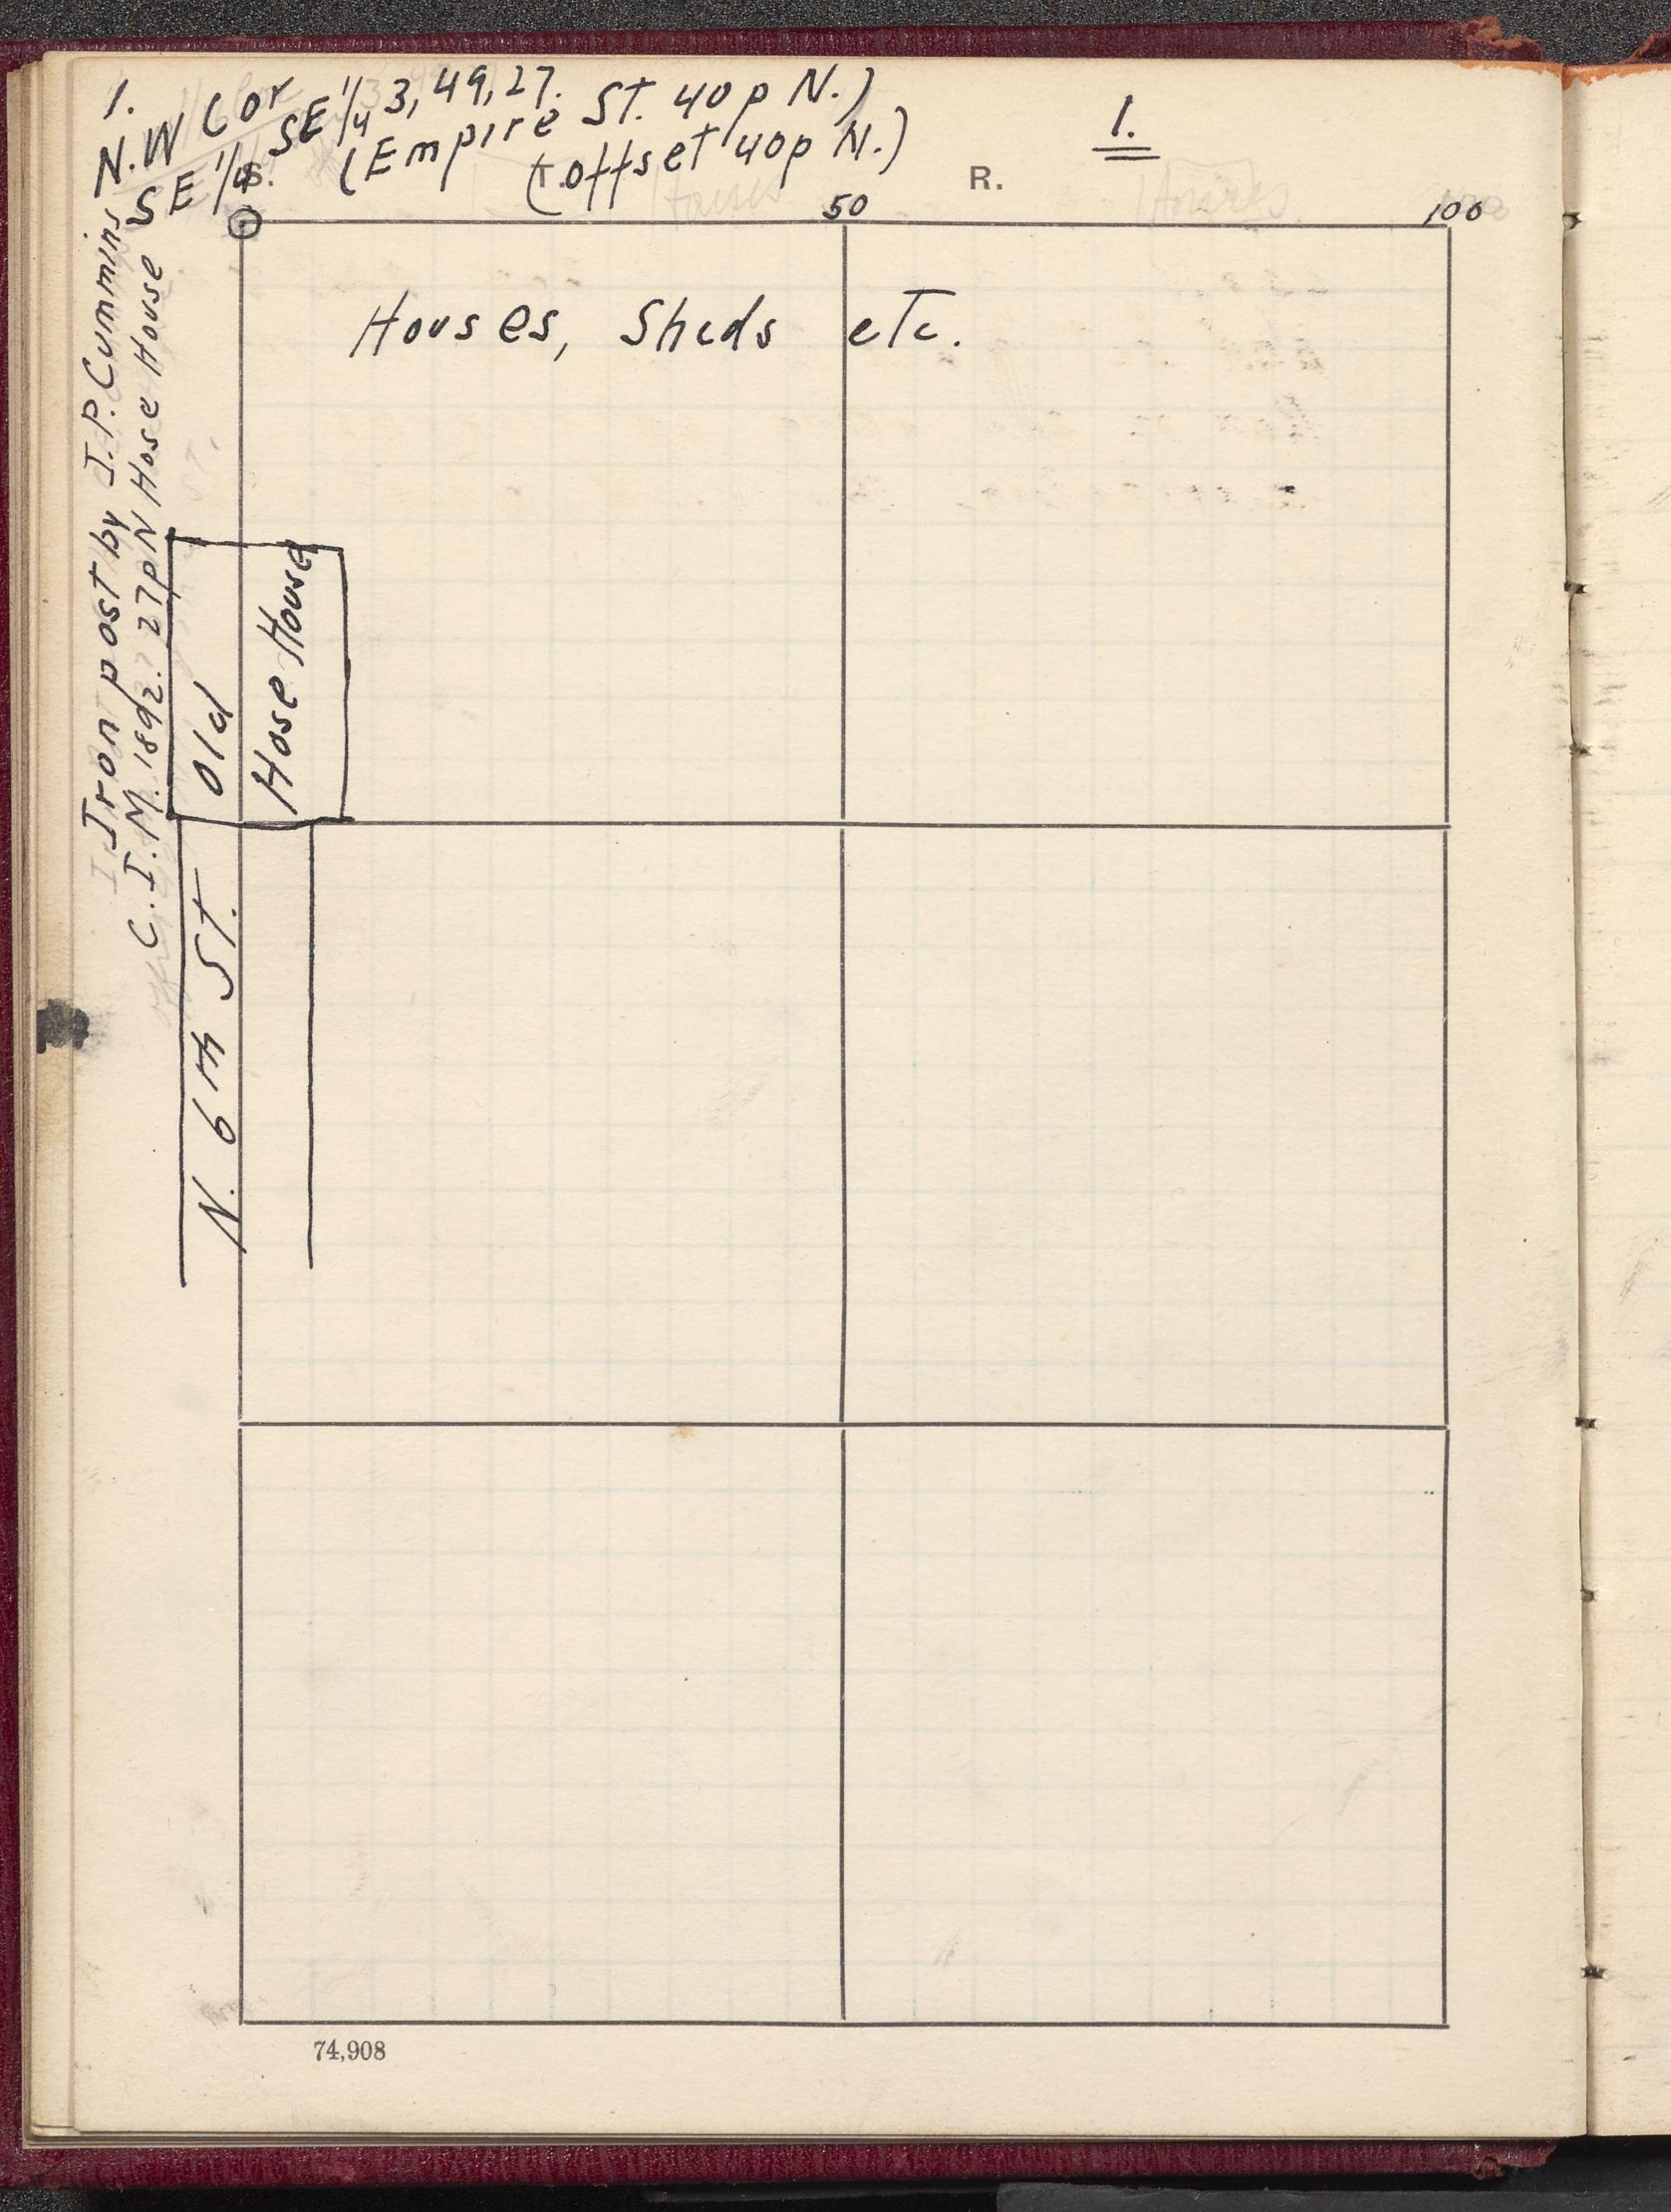 1.
N.W Cor
SE 1/4 SE 1/4 3, 49, 27.
(Empire St. 40p N.)
(T. offset 40p N.)
1.
R.
50
100
Houses, Sheds etc.
Iron post by J.P. Cummins
C.I.M. 1892. 27p N Hose House
Old
Hose House
N. 6th St.
74,908